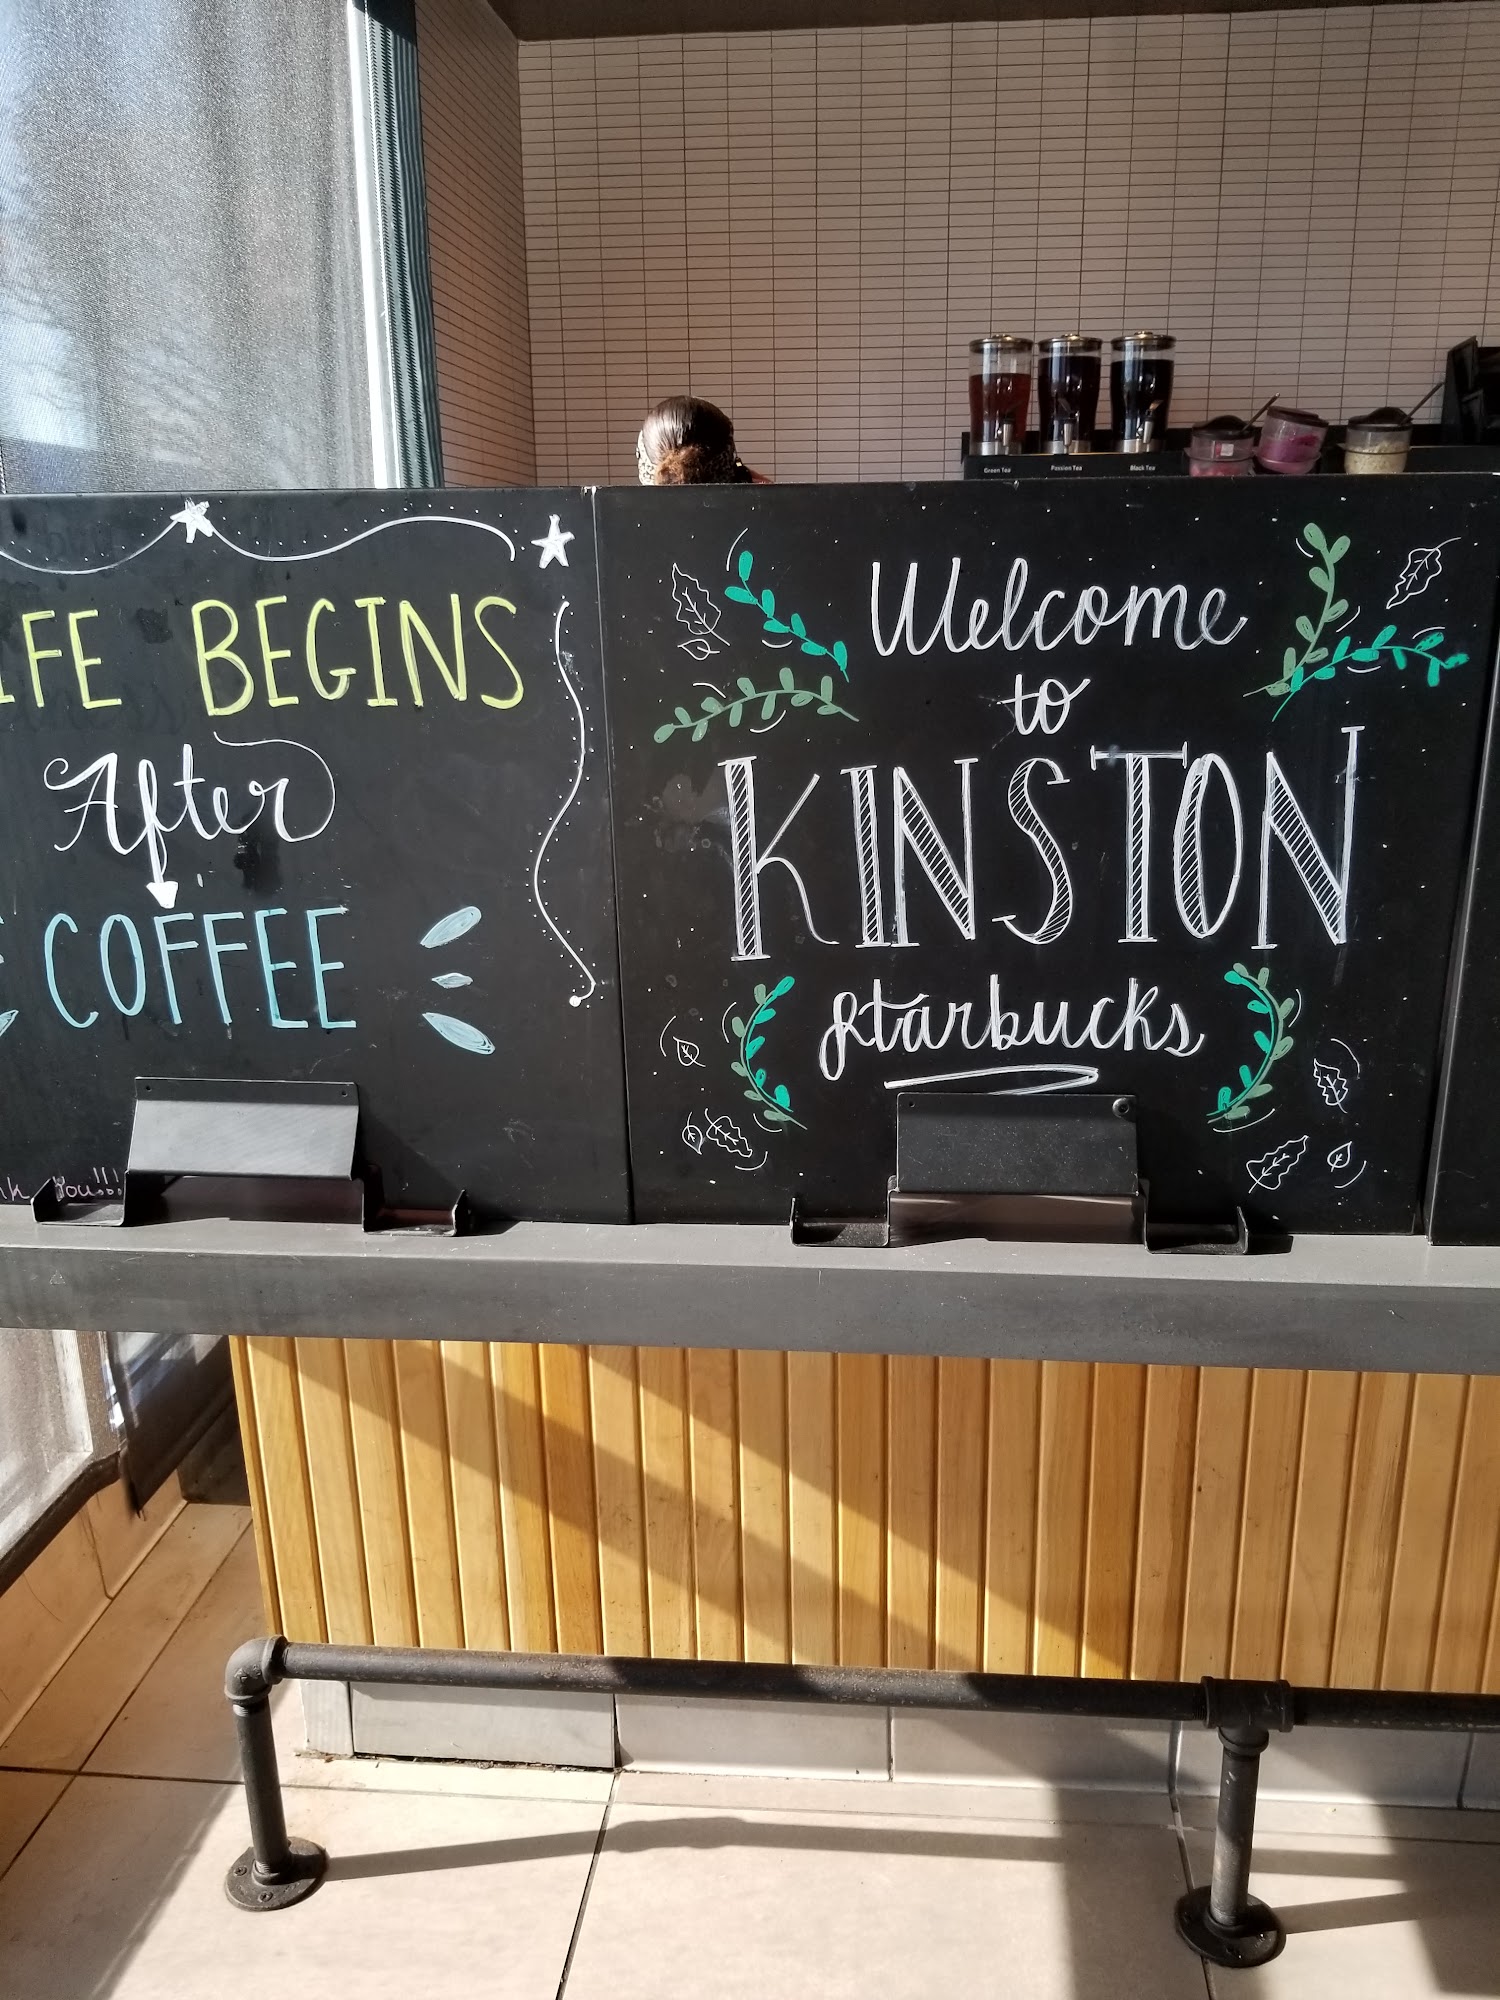 Green Tea
Passion Tea
Black Tea
IFE BEGINS
After
COFFEE
You!!!
Welcome
to
KINSTON
Starbucks